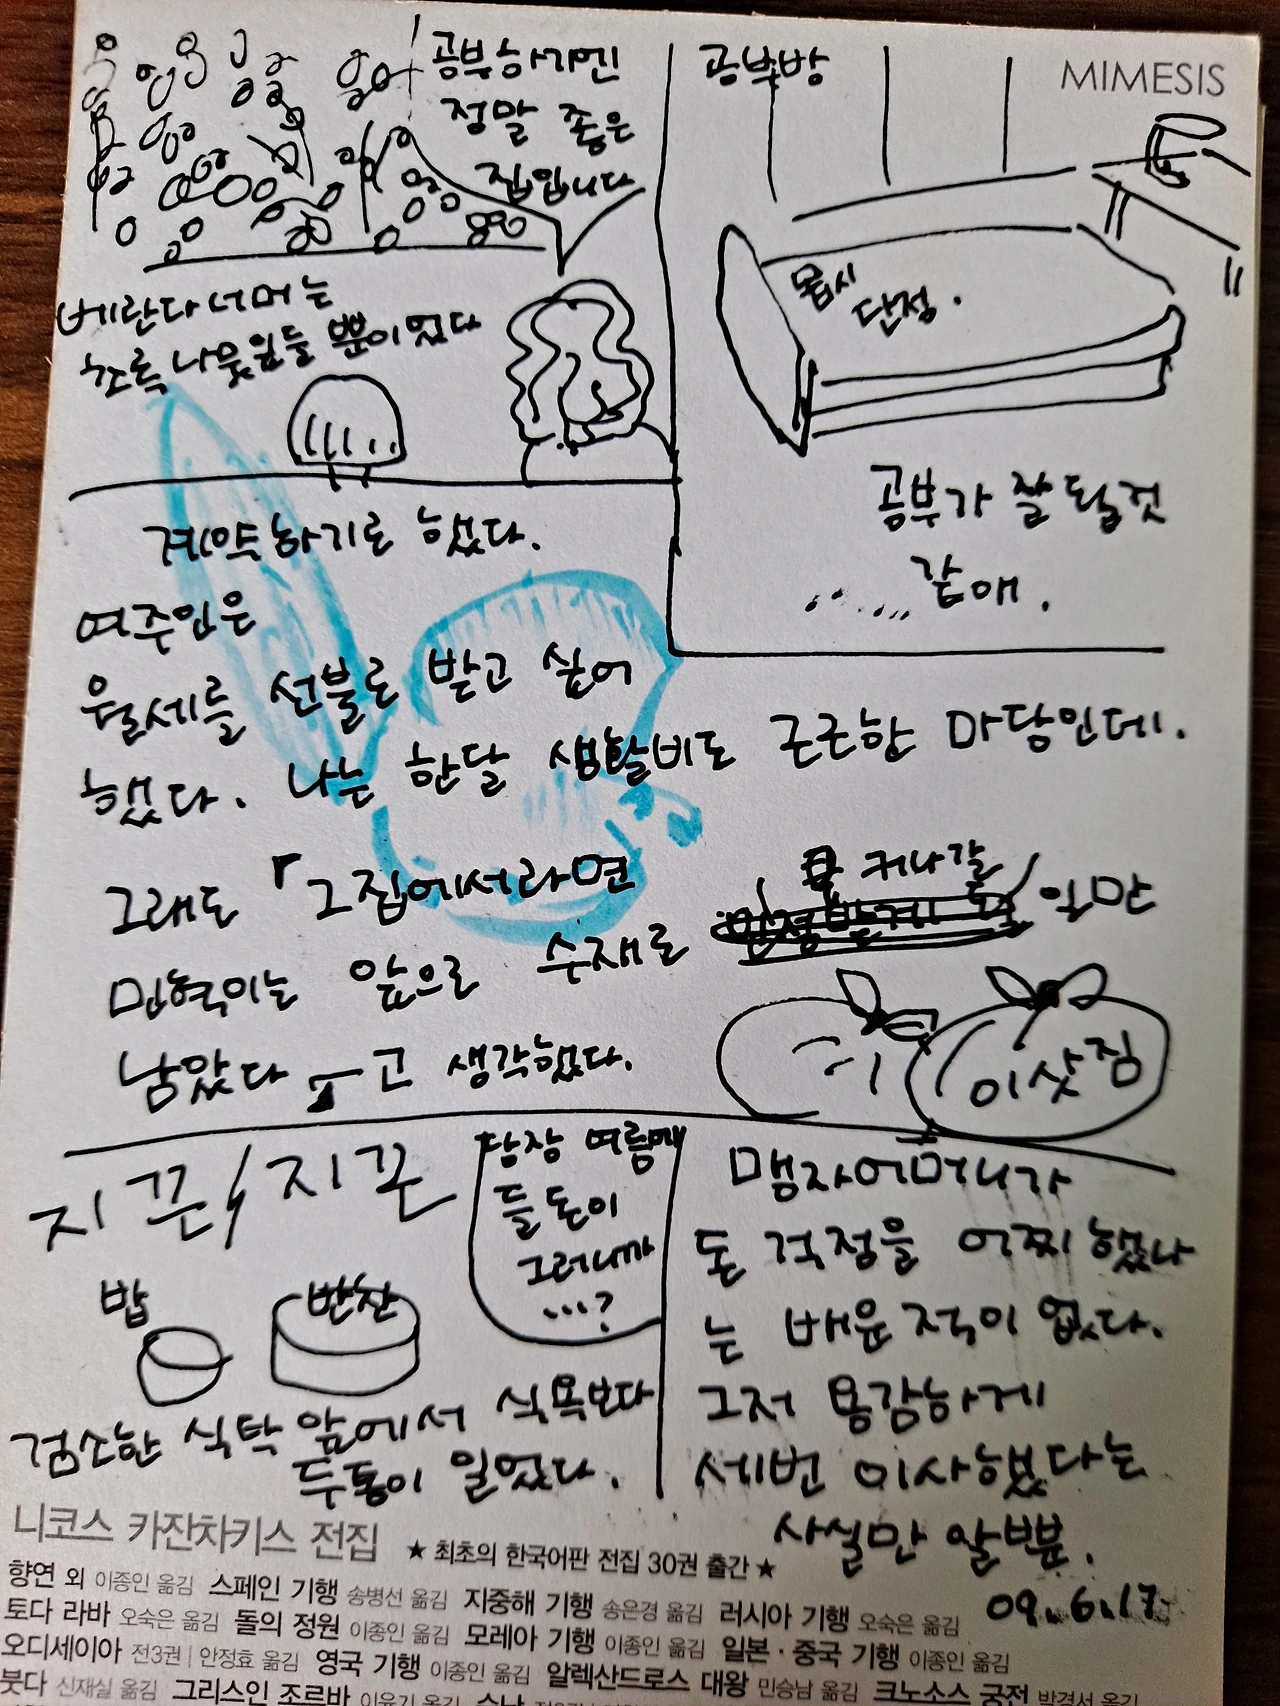 공부하기엔
정말 좋은
집입니다
베란다 너머는
초록 나뭇잎들 뿐이었다
공부방
MIMESIS
몹시
단정.
공부가 잘 될 것
같애.
계약하기로 했다.
여주인은
월세를 선불로 받고 싶어
했다. 나는 한달 생활비도 근근한 마당인데.
그래도 「그 집에서라면
민혁이는 앞으로 수재로 커나갈 일만
남았다」고 생각했다.
이삿짐
지끈/지끈
당장 여름에
들 돈이
그러니까
...?
밥
반찬
검소한 식탁 앞에서 식욕보다
두통이 일었다.
맹자어머니가
돈 걱정을 어찌 했나
는 배운 적이 없다.
그저 용감하게
세번 이사했다는
사실만 알 뿐.
09.6.17
니코스 카잔차키스 전집 ★ 최초의 한국어판 전집 30권 출간 ★
향연 외 이종인 옮김 스페인 기행 송병선 옮김 지중해 기행 송은경 옮김 러시아 기행 오숙은 옮김
토다 라바 오숙은 옮김 돌의 정원 이종인 옮김 모레아 기행 이종인 옮김 일본·중국 기행 이종인 옮김
오디세이아 전3권 | 안정효 옮김 영국 기행 이종인 옮김 알렉산드로스 대왕 민승남 옮김 크노소스 궁전 박경서 옮김
붓다 신재실 옮김 그리스인 조르바 이윤기 옮김 수난